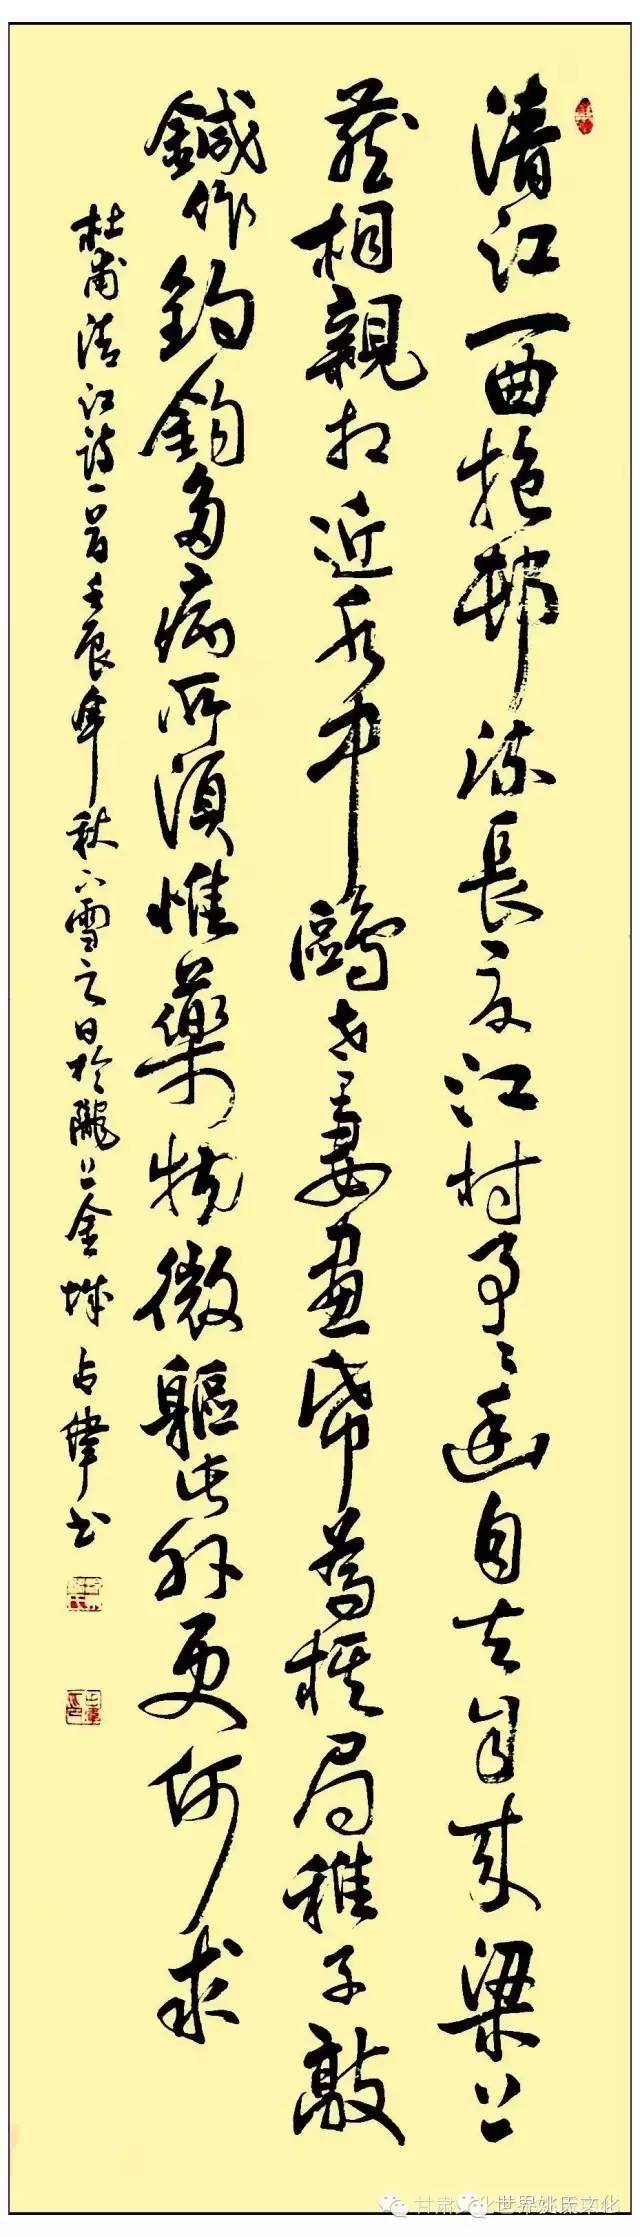 清江一曲抱邨流長夏江村事〻幽自去自来梁上
燕相親相近水中鷗老妻畫帋為棋局稚子敲
鍼作釣鈎多病所須惟藥物微軀此外更何求
杜甫清江詩一首壬辰年秋下雪之日於隴上金城占偉书
世界姚氏文化